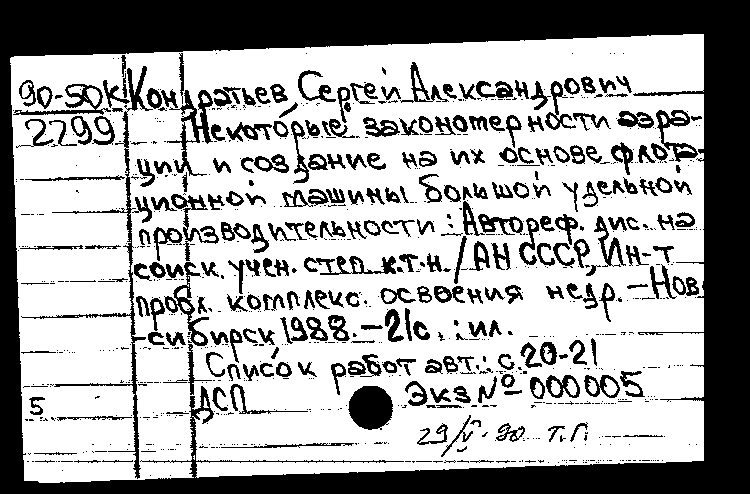 90-50К Кондратьев Сергей Александрович
2799 Некоторые закономерности аэра-
ции и создание на их основе флота-
ционной машины большой удельной
производительности : Автореф. дис. на
соиск. учен. степ. к.т.н. / АН СССР, Ин-т
пробл. комплекс. освоения недр. – Нов.
-сибирск 1988. – 21с. : ил.
Список работ авт.: с. 20-21
5 ДСП Экз № 000005
29/V-90 Т.П